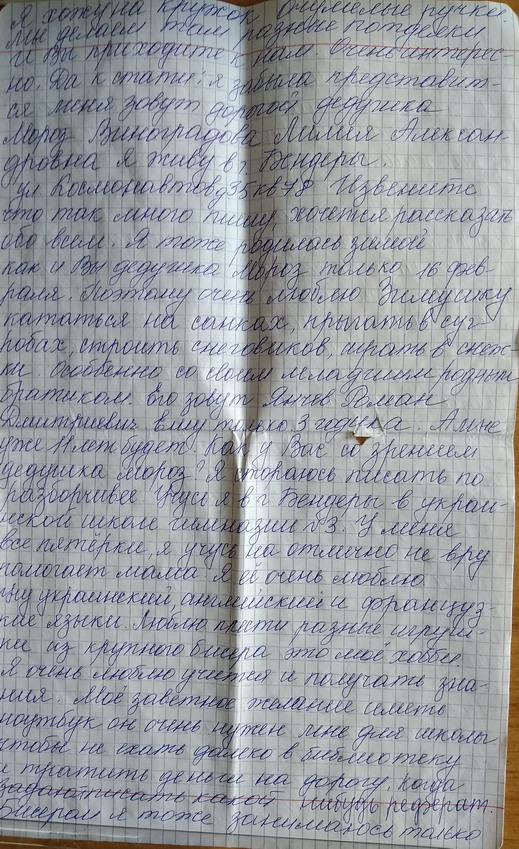 Я хожу на кружок очумелые ручки
мы делаем там разные поделки
и Вы приходите к нам. Очень интерес-
но. Да к статии: я забыла представит-
ся меня зовут дорогой дедушка
Мороз Виноградова Лилия Алексан-
дровна я живу в г. Бендеры.
ул Космонавтов д35 кв 78 Извените
что так много пишу, хочется рассказать
обо всем. Я тоже родилась зимой
как и Вы дедушка Мороз только 16 фев-
раля. Поэтому очень люблю Зимушку
кататься на санках, прыгать в суг
робах, строить снеговиков, играть в снеж
ки. Особенно со своим младшим родным
братиком. Его зовут Янчев Роман
Дмитриевич ему только 3 годика. А мне
уже 11 лет будет. Как у Вас со зрением
дедушка Мороз? Я стораюсь писать по
разборчивее учусь я в г. Бендеры в украи-
нской школе гимназии №3. У меня
все пятёрки, я учусь на отлично не вру
помогает мама. Я её очень люблю
учу украинский, английский и француз-
кие языки. Люблю плести разные игруш-
ки из крупного бисера это моё хобби.
Я очень люблю учится и получать зна-
ния. Моё заветное желание иметь
ноутбук он очень нужен мне для школы
чтобы не ехать далеко в библиотеку
и тратить деньги на дорогу, когда
писать какой пишуь реферат.
Бисером я тоже занимаюсь только